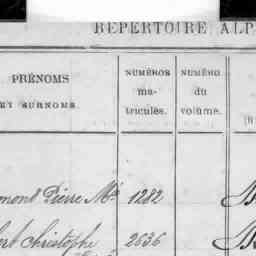 RÉPERTOIRE ALP
PRÉNOMS
ET SURNOMS.
NUMÉROS
ma-
tricules.
NUMÉRO
du
volume.
mont Pierre Mie 1282
bert Christophe 2636